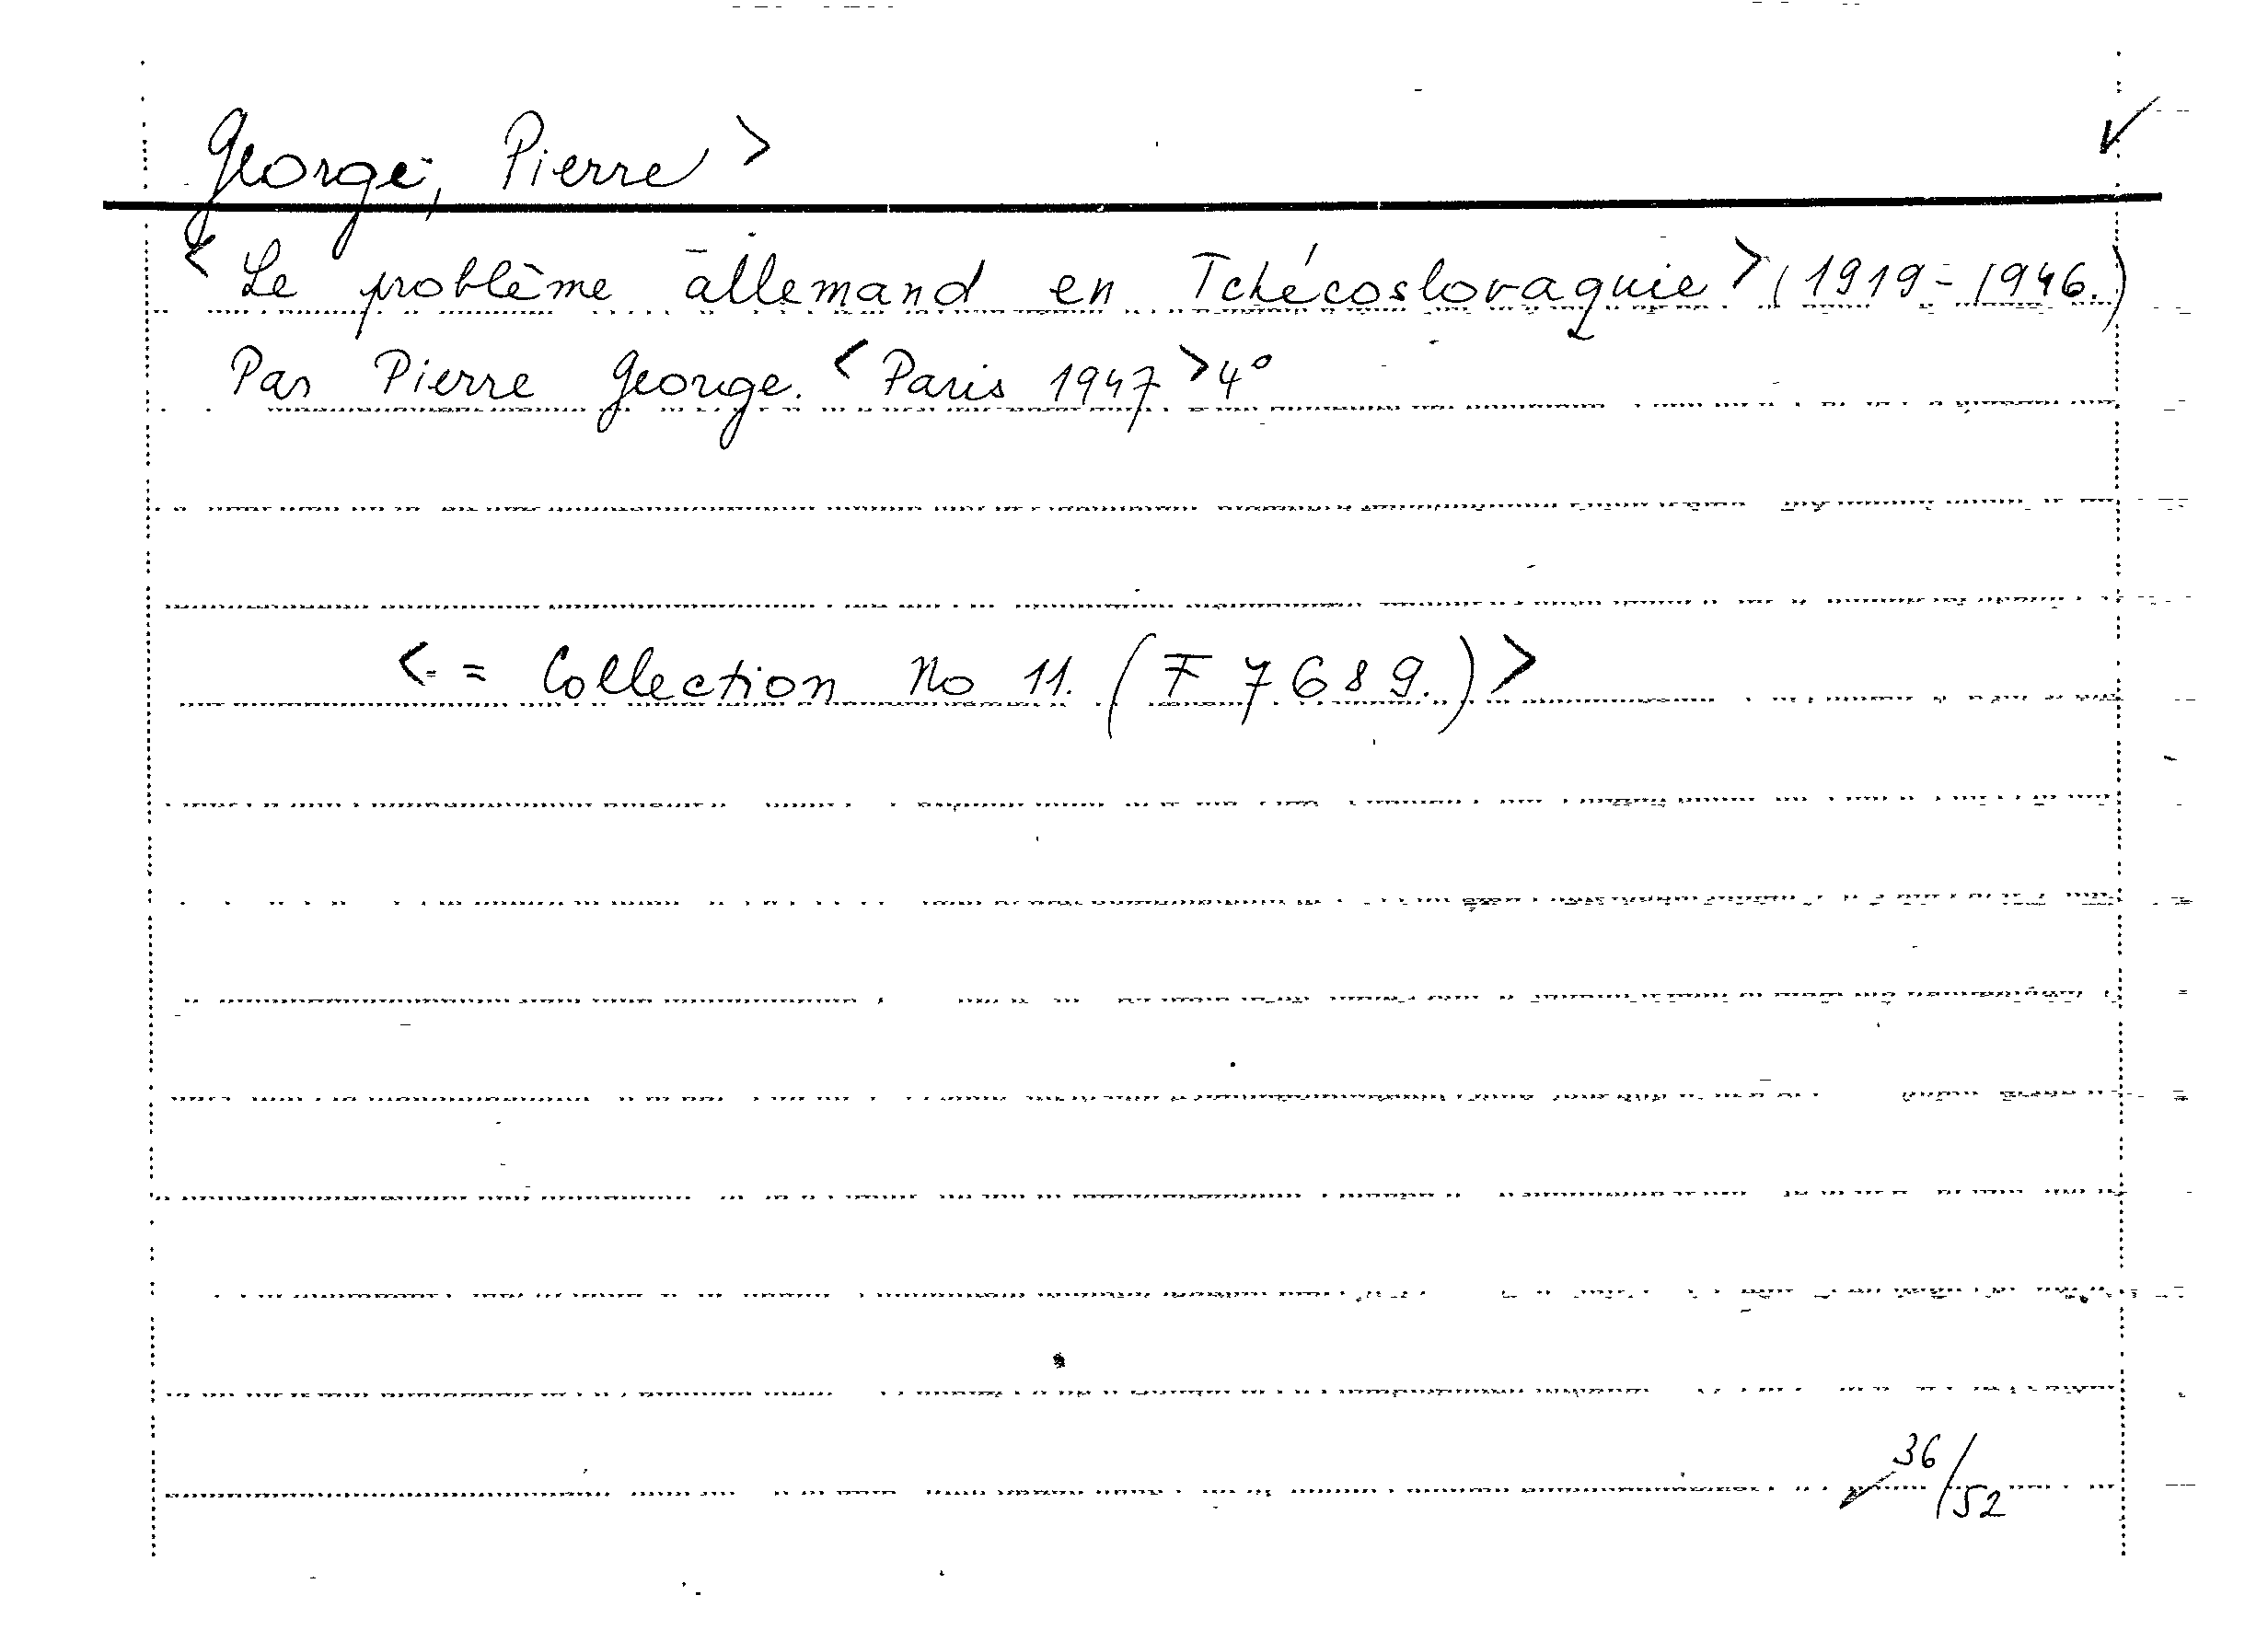 George, Pierre >
< Le problème allemand en Tchécoslovaquie > (1919-1946.)
Par Pierre George. < Paris 1947 > 4°
< = Collection No 11. (F 7689.) >
36/52